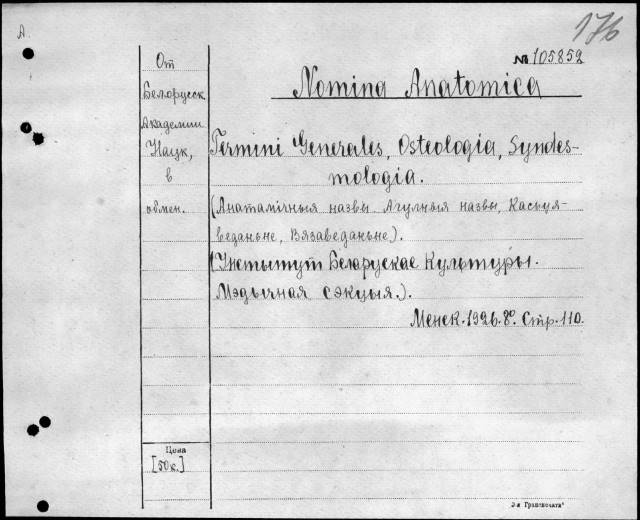 А.
176
№ 105852
От
Белорусск
Академии
Наук,
в
обмен.
Nomina Anatomica
Termini Generales, Osteologia, Syndes-
mologia.
(Анатамічныя назвы. Агульныя назвы, Касьця-
веданьне, Вязаведаньне).
(Інстытут Беларускае Культуры.
Мэдычная сэкцыя.).
Менск. 1926. 8º. Стр. 110.
Цена
[50к.]